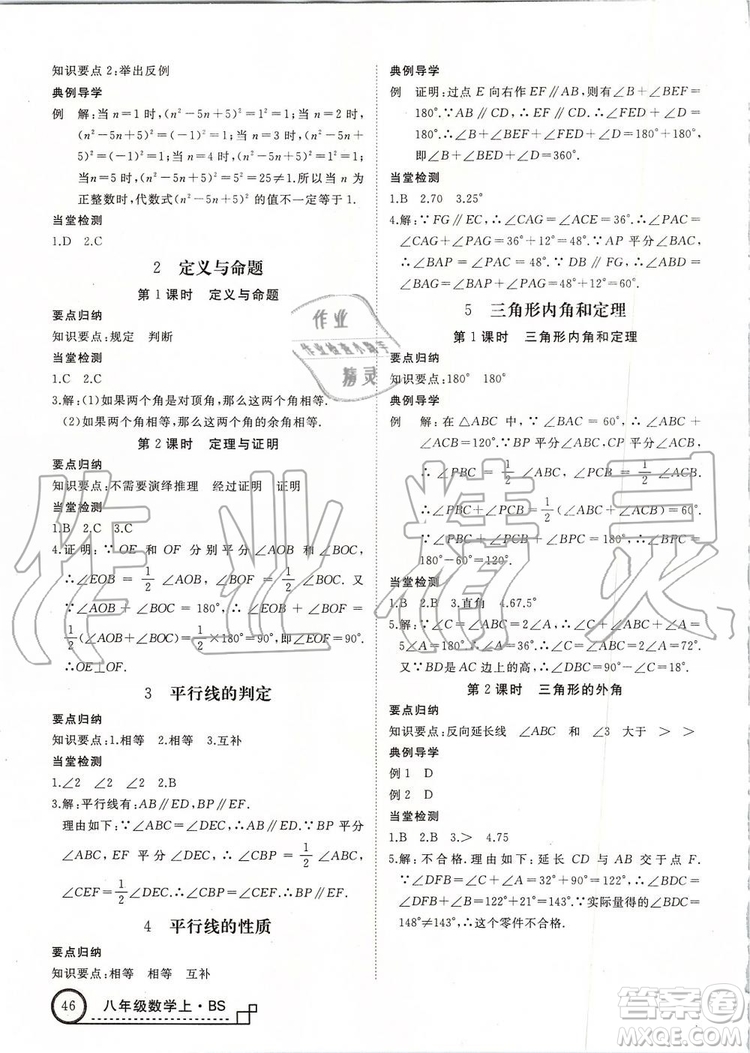 知识要点2:举出反例
典例导学
例 解:当 n=1 时,(n²-5n+5)²=1²=1;当 n=2 时,
(n²-5n+5)²=(-1)²=1;当 n=3 时,(n²-5n+
5)²=(-1)²=1;当 n=4 时,(n²-5n+5)²=1²=1;
当 n=5 时,(n²-5n+5)²=5²=25≠1.所以当 n 为
正整数时,代数式(n²-5n+5)²的值不一定等于1.
当堂检测
1.D 2.C
2 定义与命题
第1课时 定义与命题
要点归纳
知识要点:规定 判断
当堂检测
1.C 2.C
3.解:(1)如果两个角是对顶角,那么这两个角相等.
(2)如果两个角相等,那么这两个角的余角相等.
第2课时 定理与证明
要点归纳
知识要点:不需要演绎推理 经过证明 证明
当堂检测
1.B 2.C 3.C
4.证明:∵OE 和 OF 分别平分∠AOB 和∠BOC,
∴∠EOB=1/2∠AOB,∠BOF=1/2∠BOC.又
∵∠AOB+∠BOC=180°,∴∠EOB+∠BOF=
1/2(∠AOB+∠BOC)=1/2×180°=90°,即∠EOF=90°.
∴OE⊥OF.
3 平行线的判定
要点归纳
知识要点:1.相等 2.相等 3.互补
当堂检测
1.∠2 ∠2 2.B
3.解:平行线有:AB∥ED,BP∥EF.
理由如下:∵∠ABC=∠DEC,∴AB∥ED.∵BP平分
∠ABC,EF平分∠DEC,∴∠CBP=1/2∠ABC,
∠CEF=1/2∠DEC.∴∠CBP=∠CEF.∴BP∥EF.
4 平行线的性质
要点归纳
知识要点:相等 相等 互补
46 八年级数学上·BS
典例导学
例 证明:过点 E 向右作 EF∥AB,则∠B+∠BEF=
180°.∵AB∥CD,∴EF∥CD,∴∠FED+∠D=
180°.∴∠B+∠BEF+∠FED+∠D=180°+180°,
即∠B+∠BED+∠D=360°.
当堂检测
1.B 2.70 3.25°
4.解:∵FG∥EC,∴∠CAG=∠ACE=36°.∴∠PAC=
∠CAG+∠PAG=36°+12°=48°.∵AP 平分∠BAC,
∴∠BAP=∠PAC=48°.∵DB∥FG,∴∠ABD=
∠BAG=∠BAP+∠PAG=48°+12°=60°.
5 三角形内角和定理
第1课时 三角形内角和定理
要点归纳
知识要点:180° 180°
典例导学
例 解:在△ABC 中,∵∠A=60°,∴∠ABC+
∠ACB=120°.∵BP 平分∠ABC,CP 平分∠ACB,
∴∠PBC=1/2∠ABC,∠PCB=1/2∠ACB.
∴∠PBC+∠PCB=1/2(∠ABC+∠ACB)=60°.
∵∠PBC+∠PCB+∠BPC=180°,∴∠BPC=
180°-60°=120°.
当堂检测
1.B 2.B 3.直角 4.67.5°
5.解:∵∠C=∠ABC=2∠A,∴∠C+∠ABC+∠A=
5∠A=180°.∴∠A=36°.∴∠C=∠ABC=2∠A=72°.
又∵BD是AC边上的高,∴∠DBC=90°-∠C=18°.
第2课时 三角形的外角
要点归纳
知识要点:反向延长线 ∠ABC 和 ∠3 大于 > >
典例导学
例1 D
例2 D
当堂检测
1.B 2.B 3.> 4.75
5.解:不合格.理由如下:延长 CD 与 AB 交于点 F.
∵∠DFB=∠C+∠A=32°+90°=122°,∴∠BDC=
∠DFB+∠B=122°+21°=143°.∵实际量得的∠BDC=
148°≠143°,∴这个零件不合格.
作业精灵
作业
作业检查小助手
精灵
答案圈
MXQE.COM